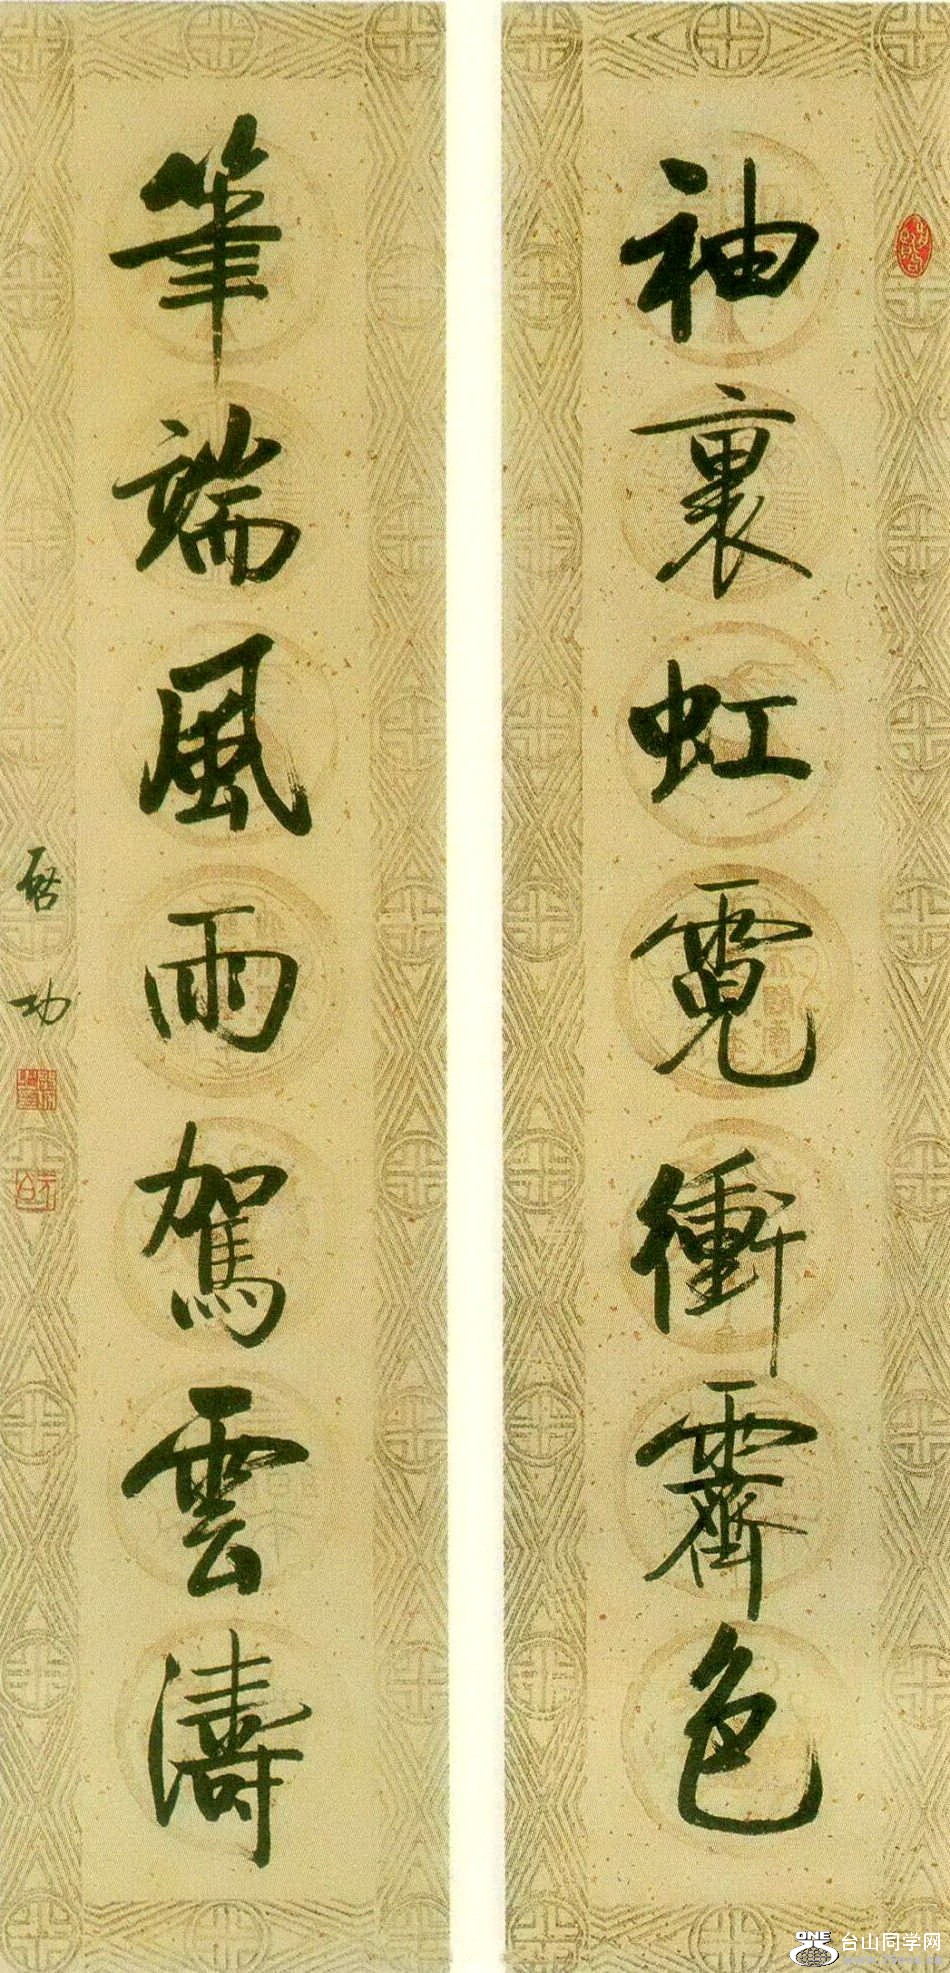 袖裏虹霓衝霽色
筆端風雨駕雲濤
啓功
ONE
台山同学网